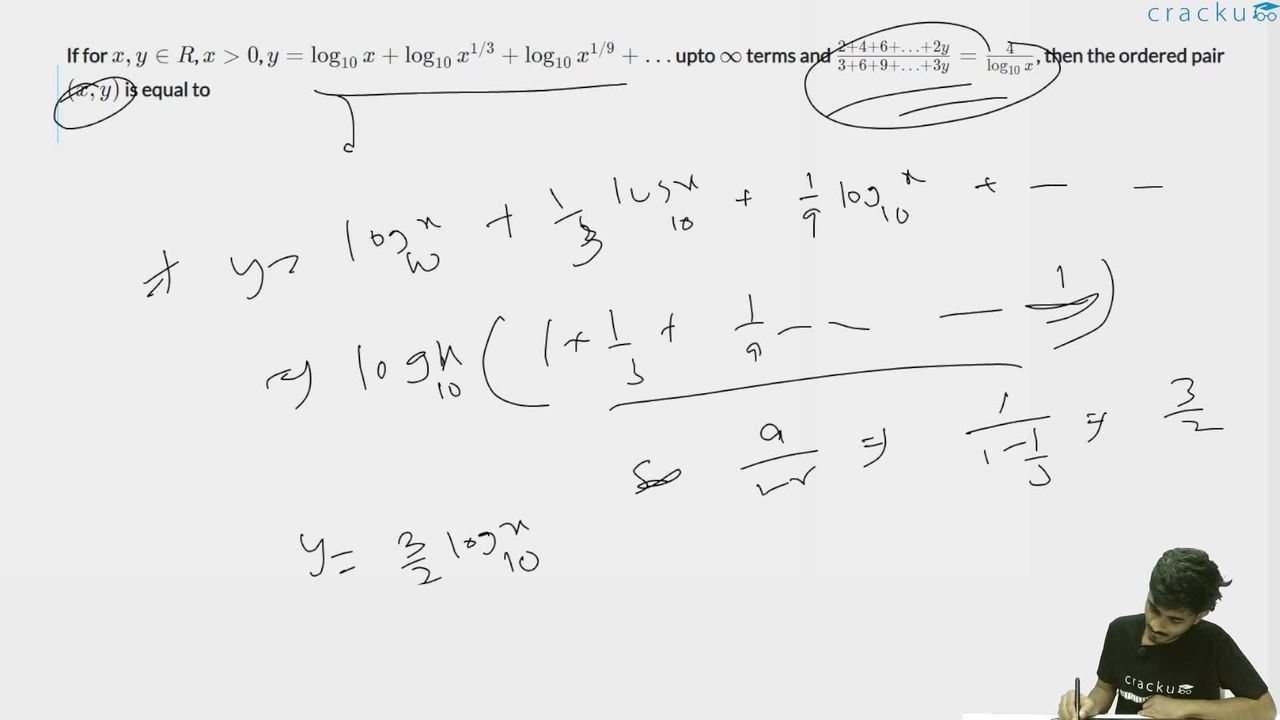 cracku
If for x, y ∈ R, x > 0, y = log₁₀ x + log₁₀ x^{1/3} + log₁₀ x^{1/9} + ... upto ∞ terms and \frac{2+4+6+...+2y}{3+6+9+...+3y} = \frac{4}{log₁₀ x}, then the ordered pair
(x, y) is equal to
y = log₁₀ x + \frac{1}{3} log₁₀ x + \frac{1}{9} log₁₀ x + — —
⇒ log₁₀ x ( 1 + \frac{1}{3} + \frac{1}{9} — — —
\frac{a}{1-r} ⇒ \frac{1}{1-\frac{1}{3}} ⇒ \frac{3}{2}
y = \frac{3}{2} log₁₀ x
cracku